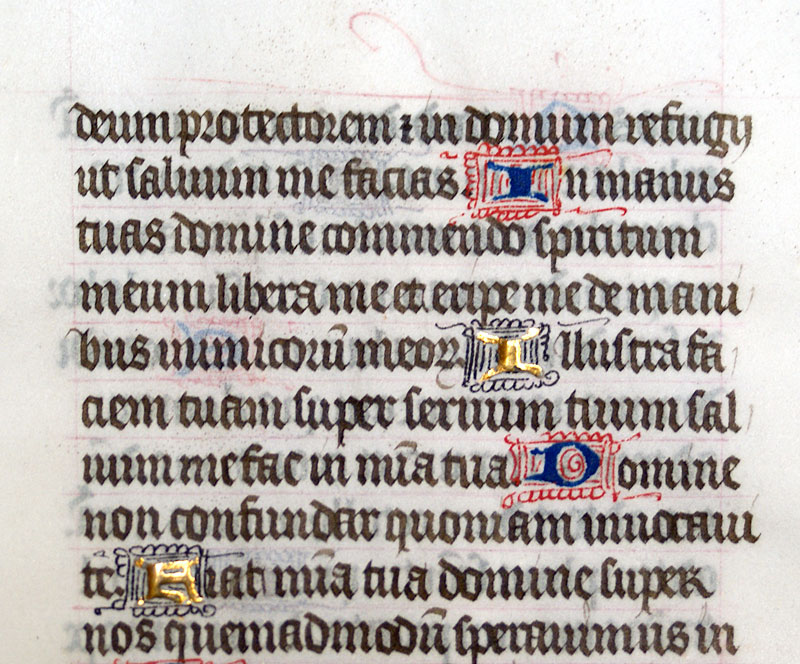 deum protectorem ⁊ in domum refugij
ut saluum me facias. In manus
tuas domine commendo spiritum
meum libera me et eripe me de mani
bus inimicorū meoꝝ Illustra fa
ciem tuam super seruum tuum sal
uum me fac in mīa tua. Domine
non confundar quoniam inuocaui
te. Fiat mīa tua domine super
nos quemadmodū sperauimus in